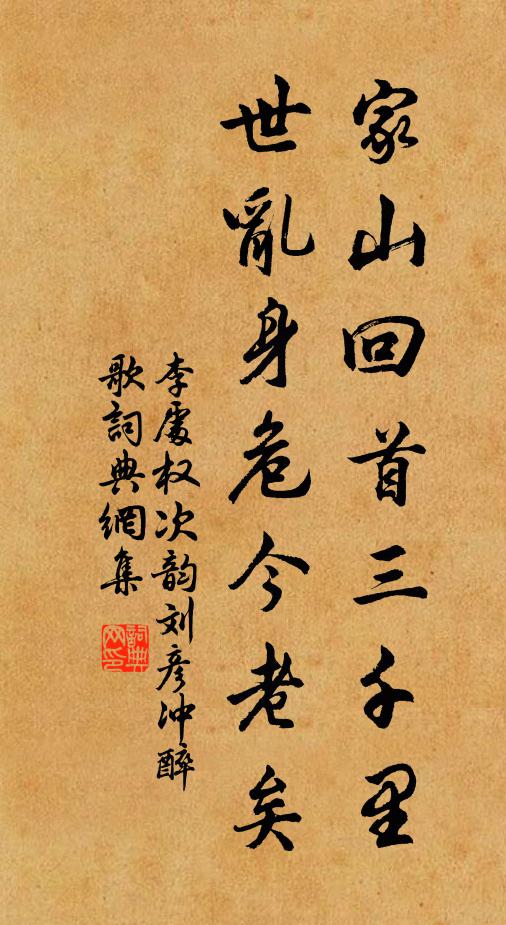 家山回首三千里
世亂身危今老矣
李處权次韵刘彦冲醉
歌詞典網集
詞典
网印